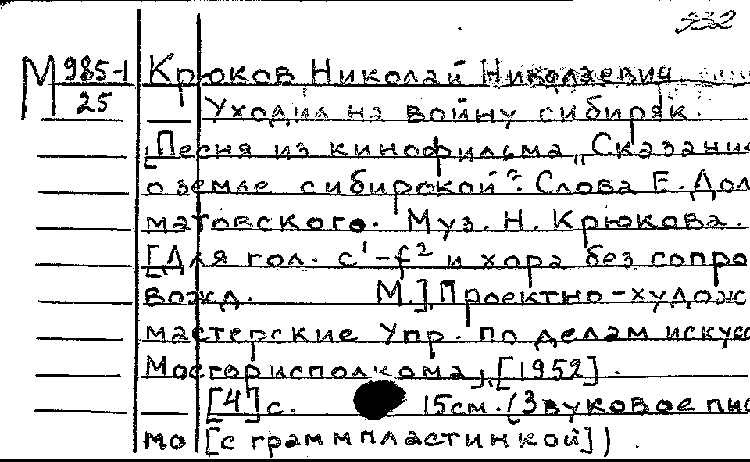 332
М 985-1 Крюков Николай Николаевич
25 Уходил на войну сибиряк.
[Песня из кинофильма „Сказание
о земле сибирской". Слова Е. Дол
матовского. Муз. Н. Крюкова.
[Для гол. c¹-f² и хора без сопро
вожд. М.], Проектно-худож
мастерские Упр. по делам искусс
Мосгорисполкома, [1952].
[4] с. 15см. (Звуковое пис
мо [с граммпластинкой]).